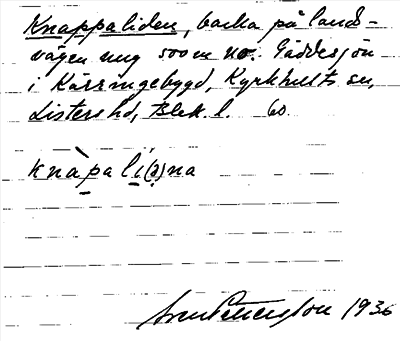 Knappaliden, backa på lands-
vägen ung 500 m no. Gäddesjön
i Kärringebygd, Kyrkhults sn,
Listers hd, Blek. l. 60
knàpalí(ə)na
1936